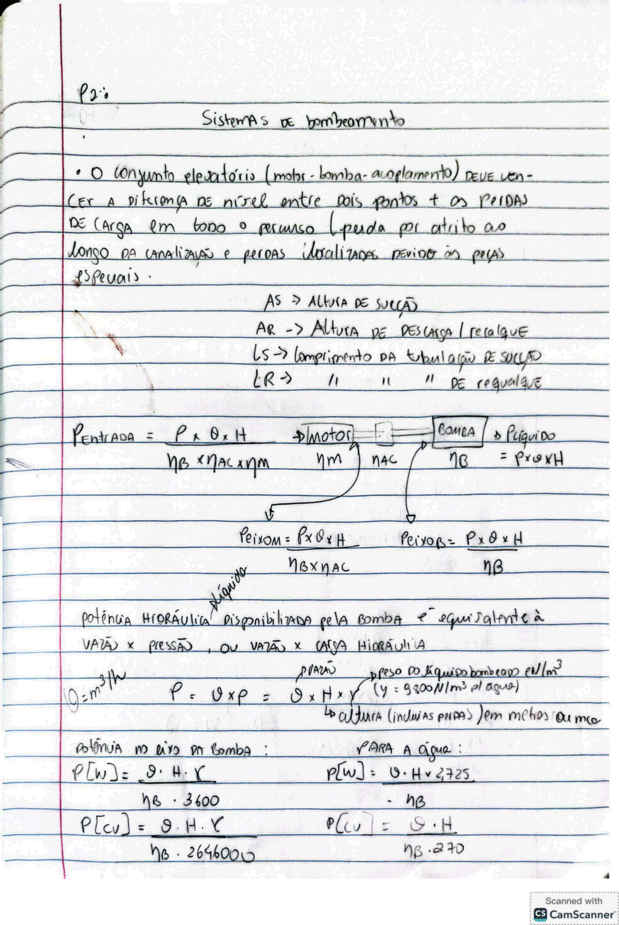 P2:
Sistemas de bombeamento
• O conjunto elevatório (motor-bomba-acoplamento) DEVE VEN-
CER A DIFERENÇA DE NÍVEL entre dois pontos + as PERDAS
DE CARGA em todo o percurso (perda por atrito ao
longo DA CANALIZAÇÃO e perdas localizadas DEVIDO às peças
especiais.
AS → ALTURA DE SUCÇÃO
AR → ALTURA DE DESCARGA / recalque
LS → Comprimento DA tubulação DE SUCÇÃO
LR → " " " DE requalque
PENTRADA = P x Q x H / ηB x ηAC x ηM
→ MOTOR BOMBA → PLÍQUIDO
ηM ηAC ηB = P x Q x H
PeixoM = P x Q x H / ηB x ηAC PeixoB = P x Q x H / ηB
líquido
potência HIDRÁULICA DISPONIBILIZADA pela BOMBA é equivalente à
VAZÃO x pressão, ou VAZÃO x CARGA HIDRÁULICA
Q = m³/h P = Q x P = Q x H x γ
→ peso do líquido bombeado eN/m³
(γ = 9800N/m³ p/ água)
↳ altura (incluias perdas) em metros ou mca
potência no eixo da Bomba: PARA A água:
P[W] = Q . H . γ / ηB . 3600 P[W] = Q . H x 2,725 / ηB
P[CV] = Q . H . γ / ηB . 2646000 P[CV] = Q . H / ηB . 270
Scanned with
CS CamScanner